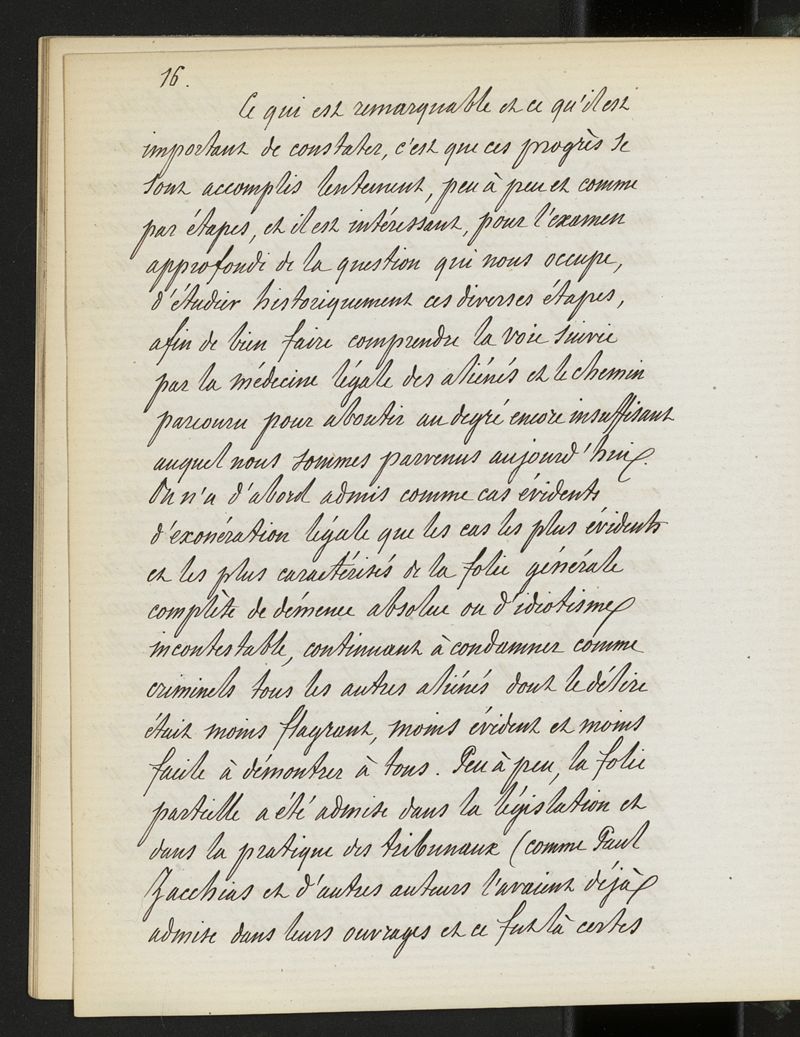 16.
Ce qui est remarquable et ce qu'il est
important de constater, c'est que ces progrès se
sont accomplis lentement, peu à peu et comme
par étapes, et il est intéressant, pour l'examen
approfondi de la question qui nous occupe,
d'étudier historiquement ces diverses étapes,
afin de bien faire comprendre la voie suivie
par la médecine légale des aliénés et le chemin
parcouru pour aboutir au degré encore insuffisant
auquel nous sommes parvenus aujourd'hui.
On n'a d'abord admis comme cas évidents
d'exonération légale que les cas les plus évidents
et les plus caractérisés de la folie générale
complète de démence absolue ou d'idiotisme
incontestable, continuant à condamner comme
criminels tous les autres aliénés dont le délire
était moins flagrant, moins évident et moins
facile à démontrer à tous. Peu à peu, la folie
partielle a été admise dans la législation et
dans la pratique des tribunaux (comme Paul
Zacchias et d'autres auteurs l'avaient déjà
admise dans leurs ouvrages et ce fut là certes